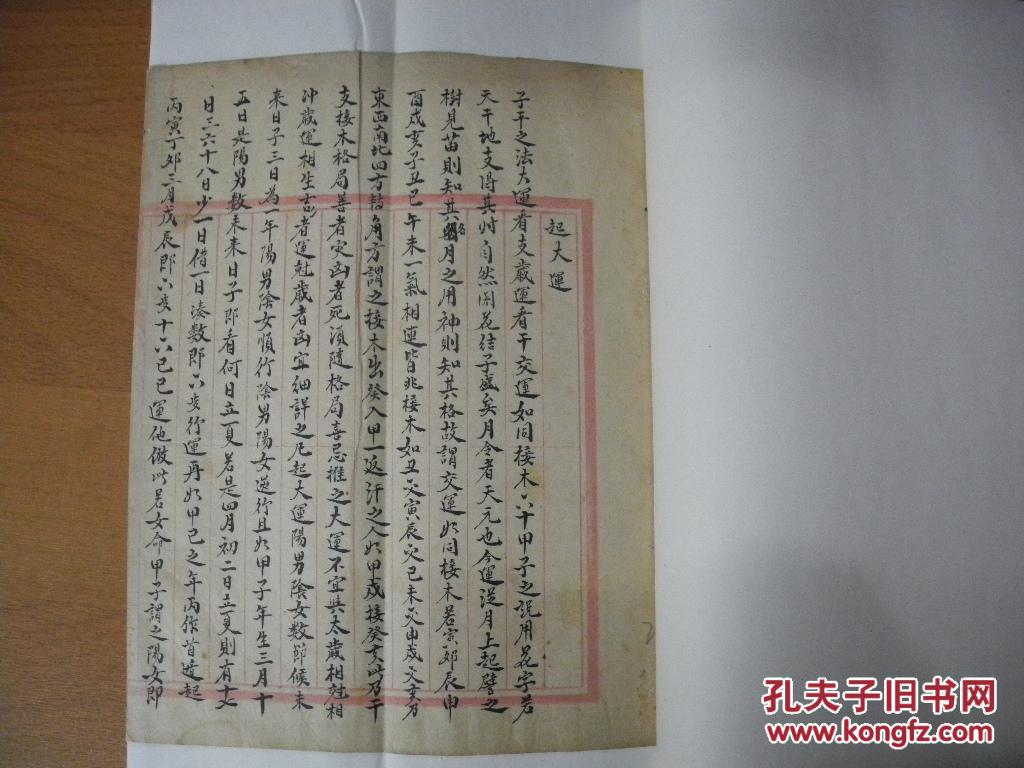 起大運
子平之法大運看支歲運看干交運如同接木六十甲子之說用花字若
天干地支得其时自然開花結子盛矣月令者天元也今運從月上起譬之
樹見苗則知其名月之用神則知其格故謂交運如同接木若寅卯辰申
酉戌亥子丑巳午未一氣相連皆非接木如丑交寅辰交巳未交申戌交亥乃
東西南北四方轉角方謂之接木出癸入甲一返汗之人如甲戌接癸亥此乃干
支接木格局善者灾凶者死須隨格局喜忌推之大運不宜與太歲相尅相
冲歲運相生吉者運尅歲者凶宜細詳之凡起大運陽男陰女數節候未
来日子三日為一年陽男陰女順行陰男陽女逆行且如甲子年生三月十
五日是陽男数未来日子即看何日立夏若是四月初二日立夏則有十七
日三六十八日少一日借一日湊数即六歲行運再如甲己之年丙作首逆起
丙寅丁卯三月戊辰即六歲十六己巳運他倣此若女命甲子謂之陽女即
孔夫子旧书网
www.kongfz.com